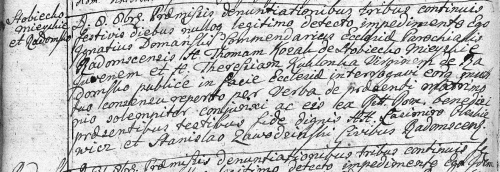 Stobiecko
Mieyskie
et Radomsko
D. 8. 8bris. Præmissis denuntiationibus tribus continuis
festivis diebus nullog legitimo detecto impedimento Ego
Ignatius Domański Commendarius Ecclesiæ Parochialis
Radomscensis Thomam Kozak de Stobiecko Mieyskie
Juvenem et Theresiam Virginem de Ra
Domsko publice in facie Ecclesiæ interrogavi eorq mu
tuo consensu reperto per Verba de præsenti matrimo
nio solemniter conjunxi ac eis ex Rit. Rom. benedixi
præsentibus testibus fide dignis Casimiro
wicz et Stanislao Zawodzinski Civibus Radomscens.
Præmissis denuntiationibus tribus continuis
legitimo detecto impedimento Ego